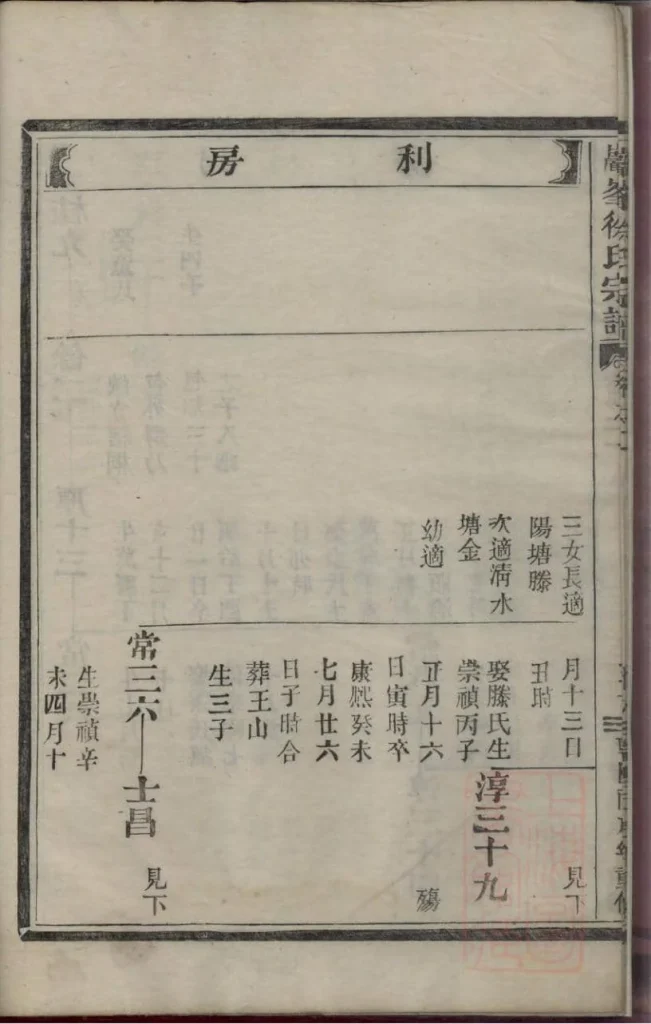 利房
三女長適
陽塘滕
次適清水
塘金
幼適
月十三日
丑時
娶滕氏生
崇禎丙子
正月十六
日寅時卒
康熈癸未
七月廿六
日子時合
葬王山
生三子
常三六
生崇禎辛
未四月十
見下
淳三十九
殤
士昌
見下
徐氏宗譜